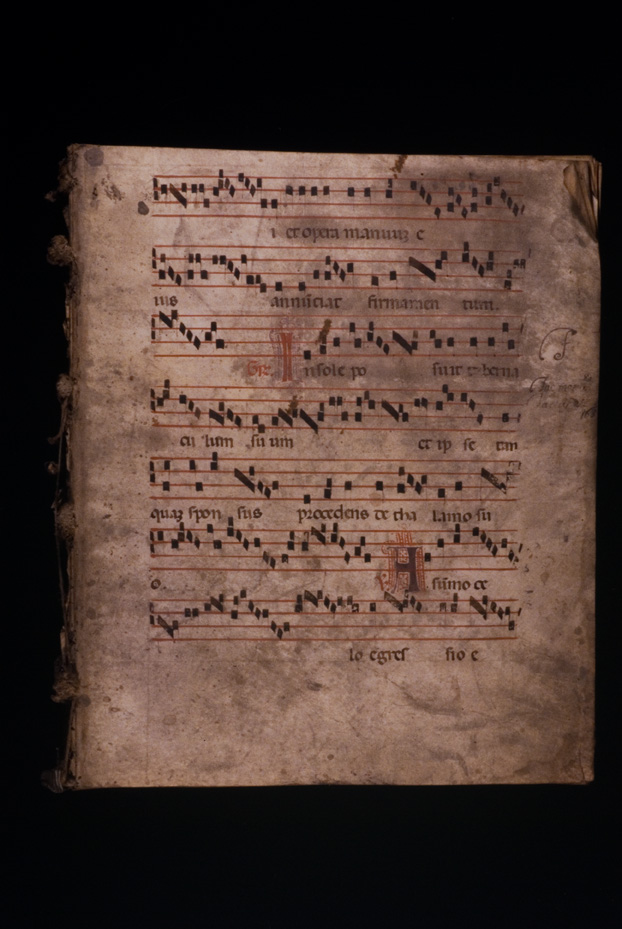 i et opera manuuʒ e
ius annūciat firmamen tum.
Gr̄. In sole po suit tabᵉna
cu lum su um et ip se tam
quaʒ spon sus procedens de tha lamo su
o. A sūmo ce
lo egres sio e